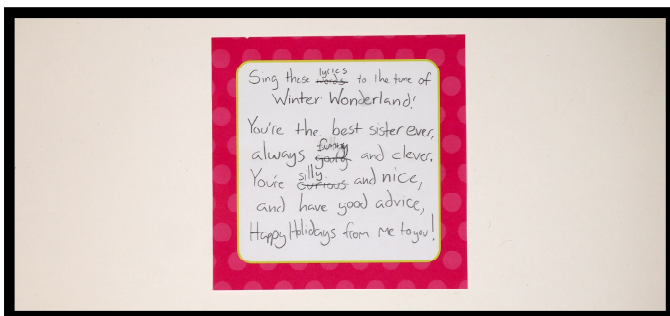 Sing these lyrics words to the tune of
Winter Wonderland!
You're the best sister ever,
always funny goofy and clever.
You're silly curious and nice,
and have good advice,
Happy Holidays from me to you!